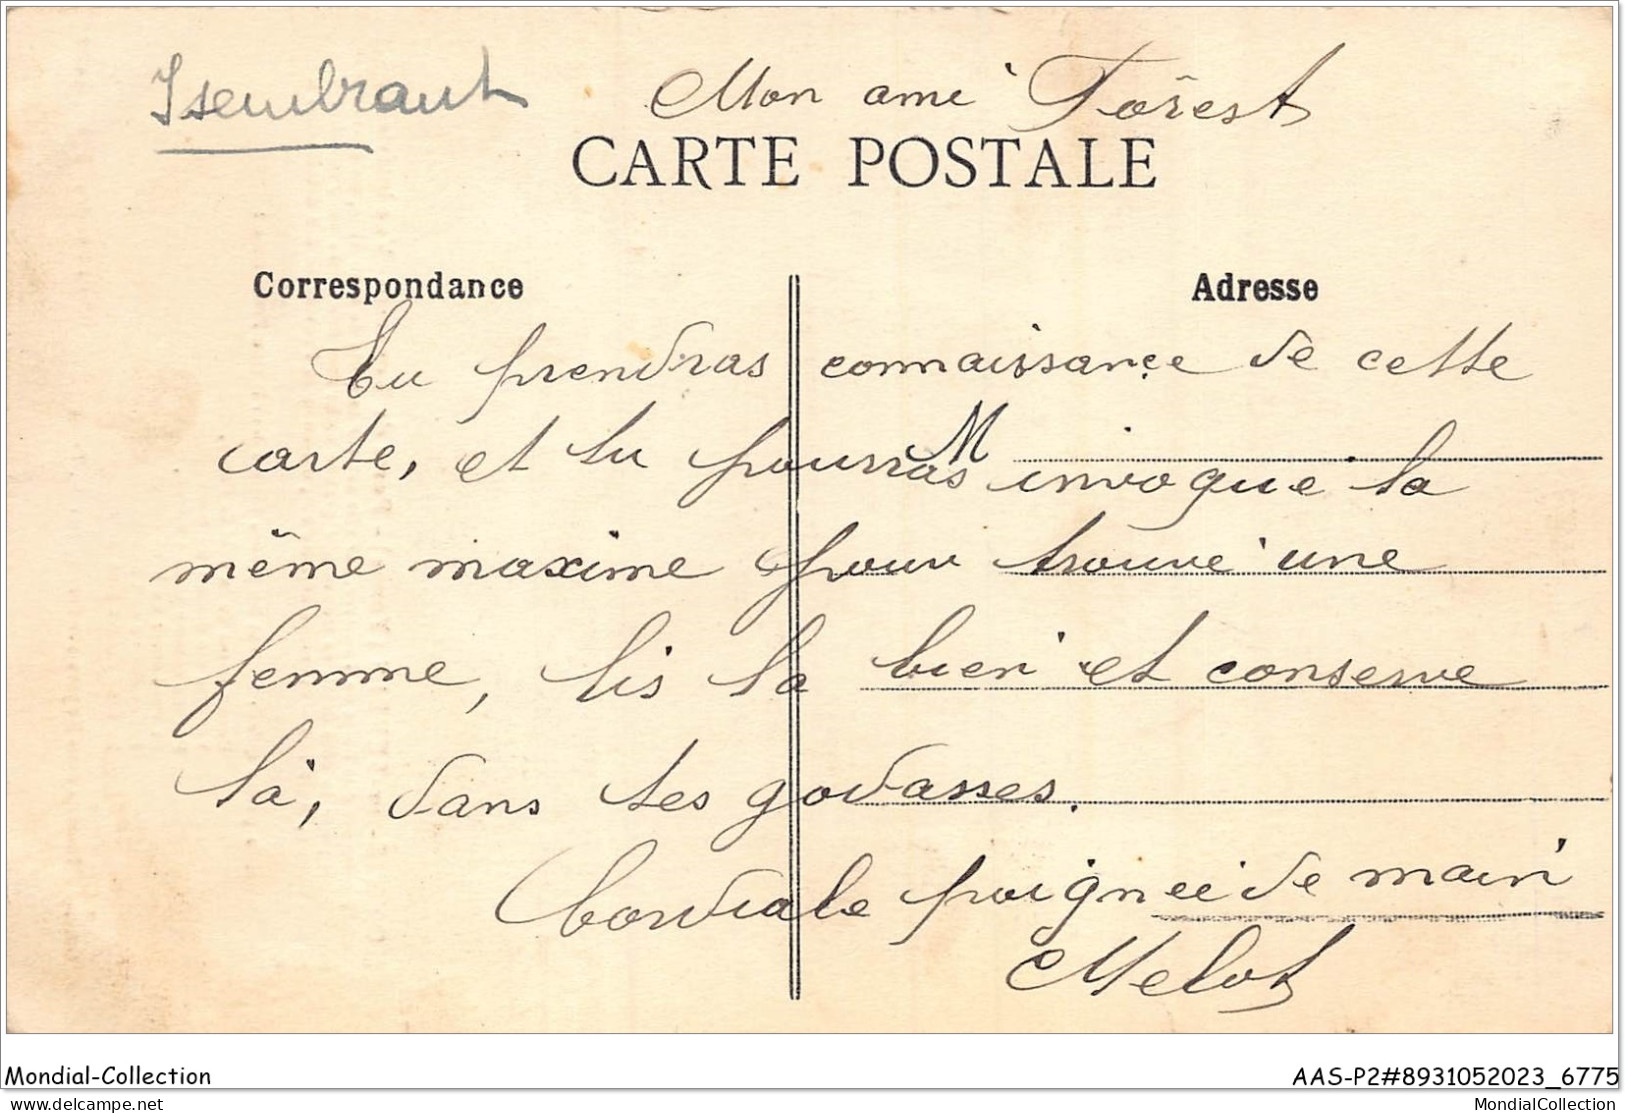 Isembraut
Mon ami Forest
CARTE POSTALE
Correspondance
Adresse
Tu prendras connaissance de cette
carte, et tu pourras invoqué la
M
même maxime pour trouvé une
femme, lis la bien et conserve
là, dans tes godasses.
Cordiale poignée de main
Melot
Mondial-Collection
AAS-P2#8931052023_6775
delcampe.net
MondialCollection